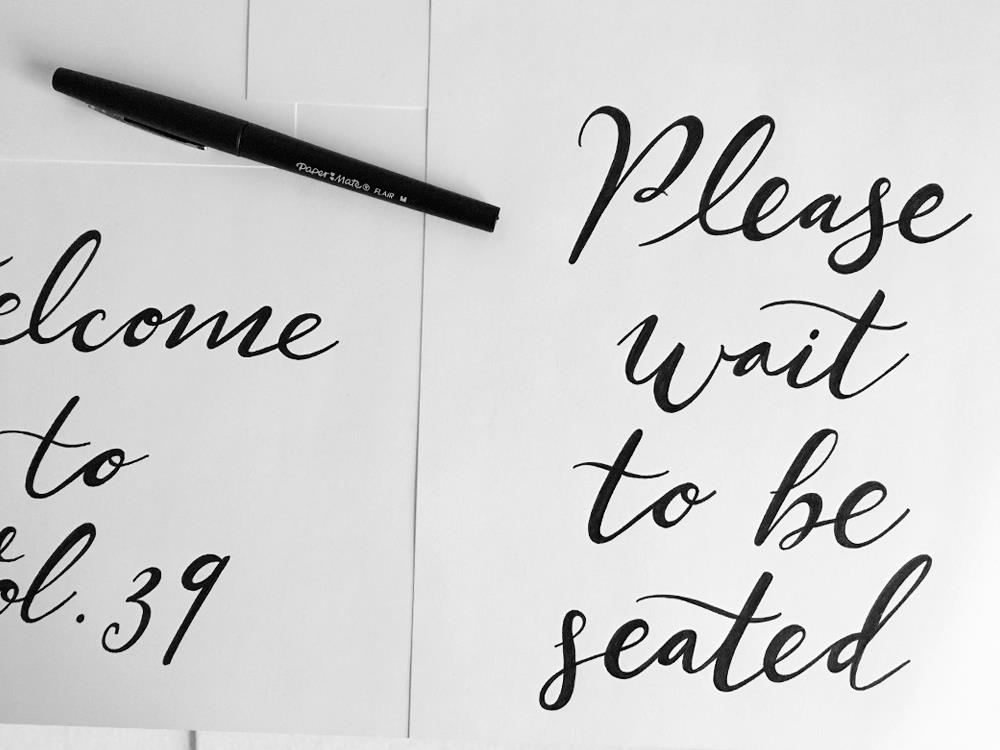 Paper Mate® FLAIR M
elcome
to
ol. 39
Please
wait
to be
seated